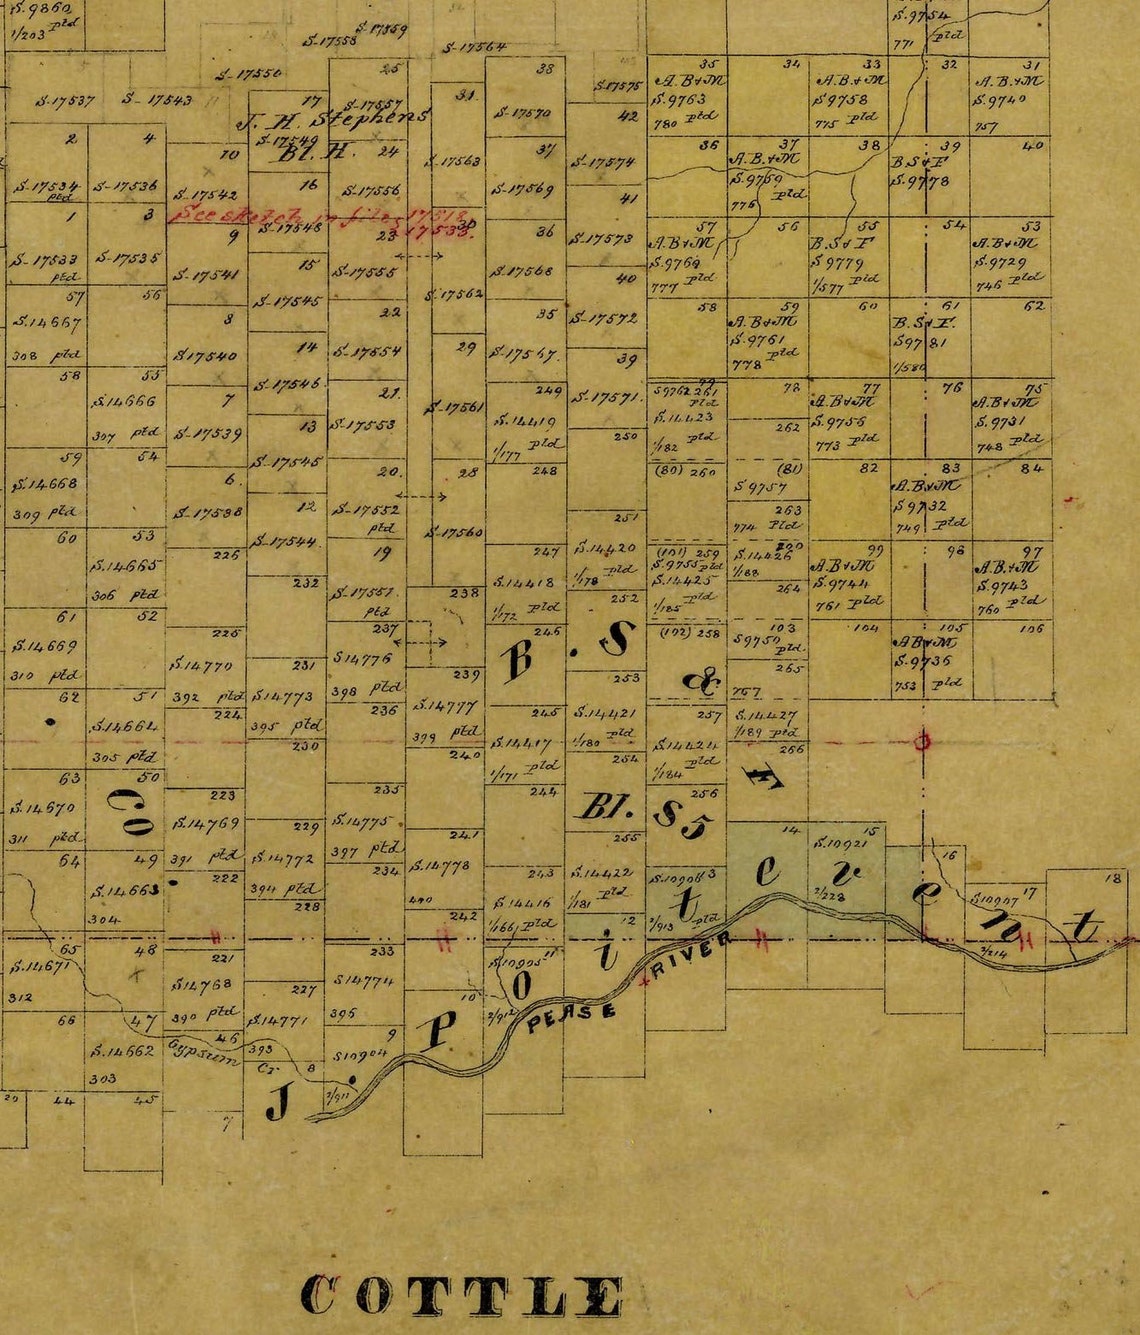 S.9860
1/203 ptd
S-17558
S-17559
S-17564
S.9754
771 ptd
S-17550
S-17537
S-17543
25
38
S-17575
35
A.B&M
S.9763
780 ptd
34
33
A.B.&M
S.9758
775 ptd
32
31
A.B&M
S.9740
757
17
S-17557
31
S-17570
42
J. H. Stephens
S-17549
Bl. H.
2
4
10
24
S-17563
37
S-17574
36
37
A.B.&M
S.9759
776 ptd
38
39
B.S&F
S-9778
40
S-17534
ptd
S-17536
S-17542
16
S-17556
S-17569
41
See sketch in file 17518
17533.
1
3
9
S-17548
23
30
36
S-17573
57
A.B&M
S.9769
777 ptd
56
55
B.S&F
S.9779
1/577 ptd
54
53
A.B&M
S.9729
746 ptd
S-17533
ptd
S-17535
S-17541
15
S-17555
S-17568
40
57
56
S-17545
S-17562
S.14667
308 ptd
8
22
35
S-17572
58
59
A.B&M
S.9761
778 ptd
60
61
B.S&F.
S9781
1/580
62
S17540
14
S-17554
29
S-17567.
39
58
55
S.14666
307 ptd
7
S-17546
21.
S-17561
249
S.14419
1/177 ptd
S-17571.
79
S9762 261
ptd
S.14423
1/182 ptd
78
262
77
A.B&M
S.9756
773 ptd
76
75
A.B&M
S.9731
748 ptd
S-17539
13
S-17553
250
59
54
S.14668
309 ptd
6.
S-17545
20.
28
248
(80) 260
(81)
S9757
82
83
A.B&M
S9732
749 ptd
84
S-17538
12
S-17552
ptd
S-17560
251
263
774 ptd
60
53
S.14665
306 ptd
226
S-17544
19
247
S.14418
1/172 ptd
S.14420
1/178 ptd
(101) 259
S.9755 ptd
S.14425
1/185 ptd
S.14426
1/188
99
A.B&M
S.9744
761 ptd
98
97
A.B&M
S.9743
760 ptd
232
S-17551
ptd
238
252
264
61
52
S.14669
310 ptd
225
237
S14776
398 ptd
246
B. S & F
(102) 258
103
S9750
ptd
104
105
AB&M
S.9736
753 ptd
106
S.14770
392 ptd
231
S.14773
395 ptd
239
S.14777
399 ptd
253
265
757
62
51
S.14664
305 ptd
224
236
245
S.14417
1/171 ptd
S.14421
1/180 ptd
257
S.14424
1/184 ptd
S.14427
1/189 ptd
230
240
254
266
63
50
S.14670
311 ptd
CO
223
S.14769
391 ptd
235
S.14775
397 ptd
244
Bl. S5
256
229
S.14772
394 ptd
241
S.14778
400
255
S.14422
1/181 ptd
14
15
S.10921
2/228
16
64
49
S.14663
304
222
234
243
S.14416
1/166 ptd
S.10908 13
2/913 ptd
17
S10907
2/214
18
228
242
12
H
H
H
H
65
48
S.14671
312
221
S.14768
390 ptd
233
S14774
396
S.10905 11
2/912
RIVER
PEASE
66
47
S.14662
303
46
227
S.14771
393
10
9
S10904
2/911
Gypsum
Cr
8
20
44
45
7
J Poitevent
COTTLE